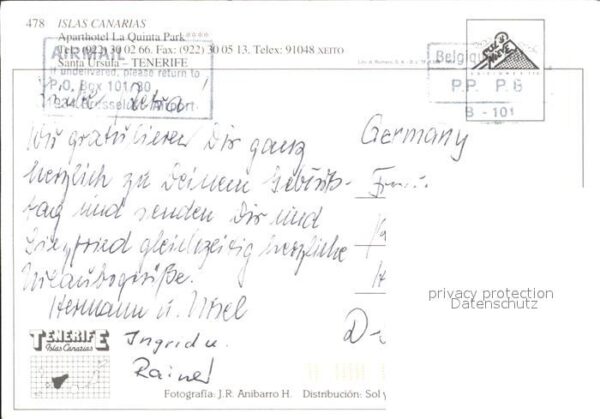 478 ISLAS CANARIAS
Aparthotel La Quinta Park****
Tel.: (922) 30 02 66. Fax: (922) 30 05 13. Telex: 91048 XEITO
Santa Ursula – TENERIFE
AIRMAIL
If undelivered, please return to
P.O. Box 101/80
Airport
Belgique
P.P. P.B
B - 101
Wir gratulieren Dir ganz
herzlich zu Deinem Geburts-
tag und senden Dir und
Siegfried gleichzeitig herzliche
Urlaubsgrüße.
Hermann u.
Ingrid u.
Rainer
Germany
privacy protection
Datenschutz
TENERIFE
Islas Canarias
Fotografía: J.R. Anibarro H. Distribución: Sol y